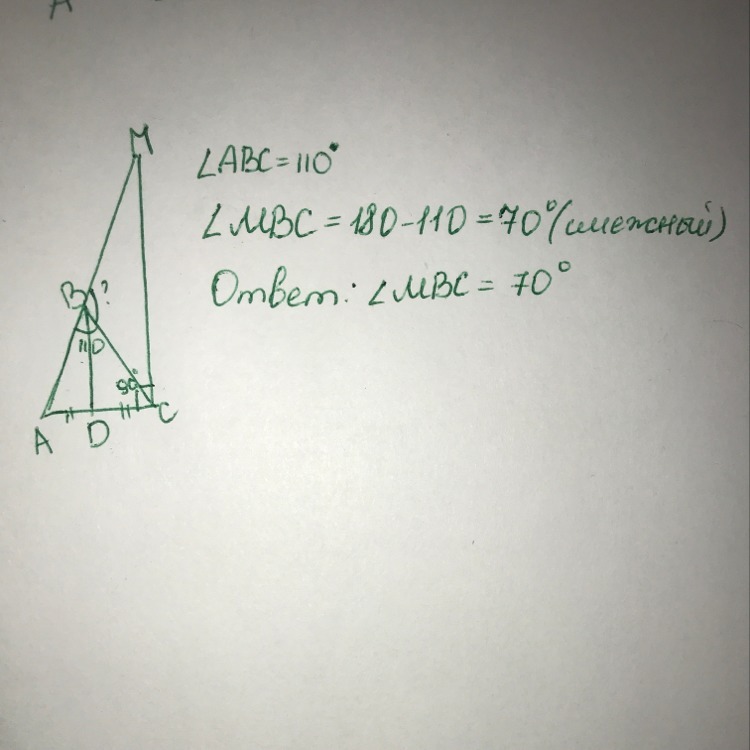 A
M
∠ABC = 110°
∠MBC = 180-110 = 70° (смежный)
B ?
Ответ: ∠MBC = 70°
110
90°
A D C